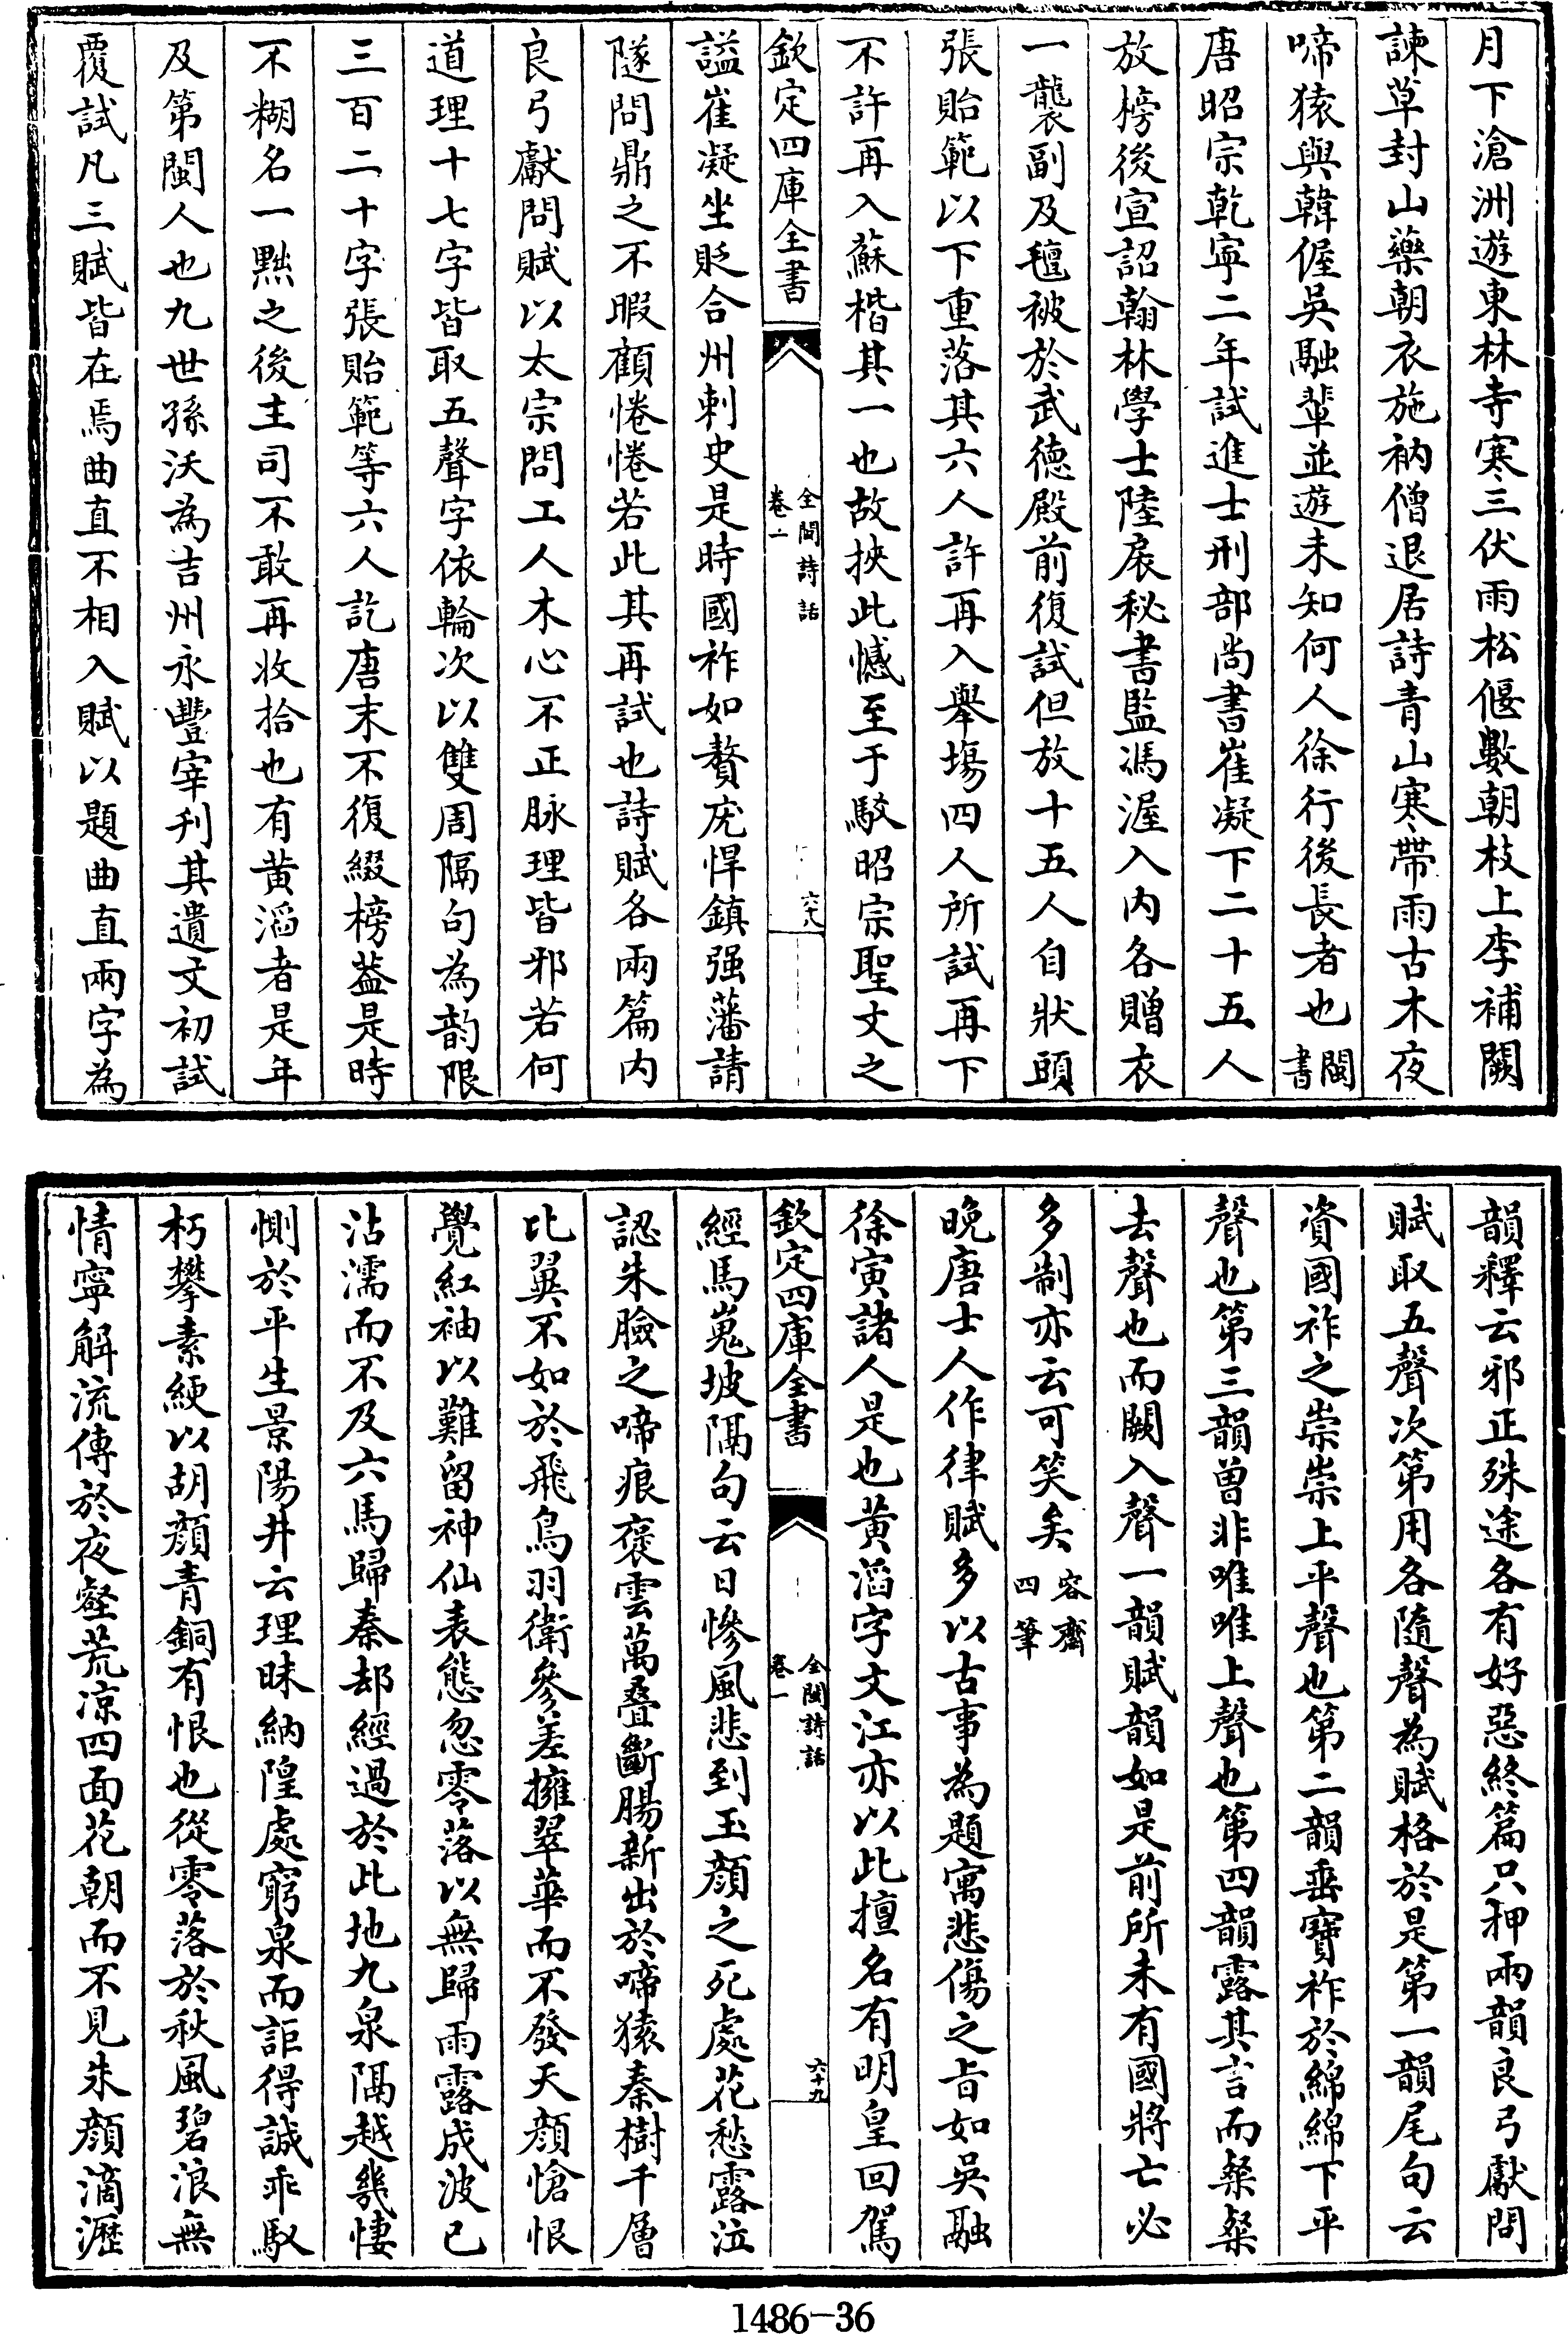 月下滄洲遊東林寺寒三伏雨松偃數朝枝上李補闕
諫草封山藥朝衣施衲僧退居詩青山寒帶雨古木夜
啼猿與韓偓吳融輩並遊未知何人徐行後長者也閩書
唐昭宗乾寧二年試進士刑部尚書崔凝下二十五人
放榜後宣詔翰林學士陸扆秘書監馮渥入内各贈衣
一襲副及氊被於武德殿前復試但放十五人自狀頭
張貽範以下重落其六人許再入舉塲四人所試再下
不許再入蘇楷其一也故挾此憾至于駮昭宗聖文之
欽定四庫全書
全閩詩話
卷一
六十八
謚崔凝坐貶合州刺史是時國祚如贅疣悍鎮强藩請
隧問鼎之不暇顧惓惓若此其再試也詩賦各兩篇内
良弓獻問賦以太宗問工人木心不正脉理皆邪若何
道理十七字皆取五聲字依輪次以雙周隔句為韵限
三百二十字張貽範等六人訖唐末不復綴榜葢是時
不糊名一黜之後主司不敢再收拾也有黄滔者是年
及第閩人也九世孫沃為吉州永豐宰刋其遺文初試
覆試凡三賦皆在焉曲直不相入賦以題曲直兩字為
韻釋云邪正殊途各有好惡終篇只押兩韻良弓獻問
賦取五聲次第用各隨聲為賦格於是第一韻尾句云
資國祚之崇崇上平聲也第二韻垂寶祚於綿綿下平
聲也第三韻曽非唯唯上聲也第四韻露其言而粲粲
去聲也而闕入聲一韻賦韻如是前所未有國將亡必
多制亦云可笑矣容齋四筆
晚唐士人作律賦多以古事為題寓悲傷之旨如吳融
徐寅諸人是也黄滔字文江亦以此擅名有明皇回駕
欽定四庫全書
全閩詩話
卷一
六十九
經馬嵬坡隔句云日慘風悲到玉顔之死處花愁露泣
認朱臉之啼痕褒雲萬叠斷腸新出於啼猿秦樹千層
比翼不如於飛鳥羽衛參差擁翠華而不發天顔愴恨
覺紅袖以難留神仙表態忽零落以無歸雨露成波已
沾濡而不及六馬歸秦却經過於此地九泉隔越幾悽
惻於平生景陽井云理昧納隍處窮泉而詎得誠乖馭
朽攀素綆以胡顔青銅有恨也從零落於秋風碧浪無
情寧解流傳於夜壑荒凉四面花朝而不見朱顔滴瀝
1486-36